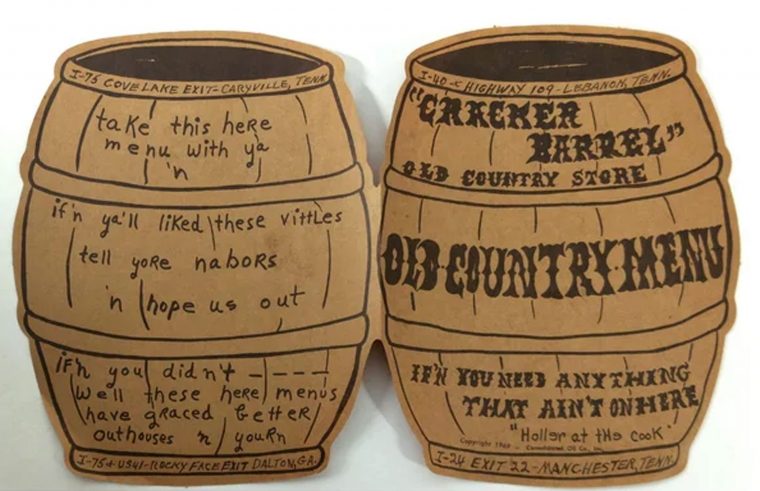 I-75 COVE LAKE EXIT-CARYVILLE, TENN
take this here
menu with ya
'n
if'n ya'll liked these vittles
tell yore nabors
'n hope us out
if'n you didn't ----
well these here menus
have graced better
outhouses 'n yourn
I-75 & US41-ROCKY FACE EXIT DALTON, GA.
I-40 & HIGHWAY 109-LEBANON, TENN.
"CRACKER
BARREL"
OLD COUNTRY STORE
OLD COUNTRY MENU
IF'N YOU NEED ANYTHING
THAT AIN'T ON HERE
"Holler at the cook"
Copyright 1969 - Consolidated Oil Co., Inc.
I-24 EXIT 22-MANCHESTER, TENN.